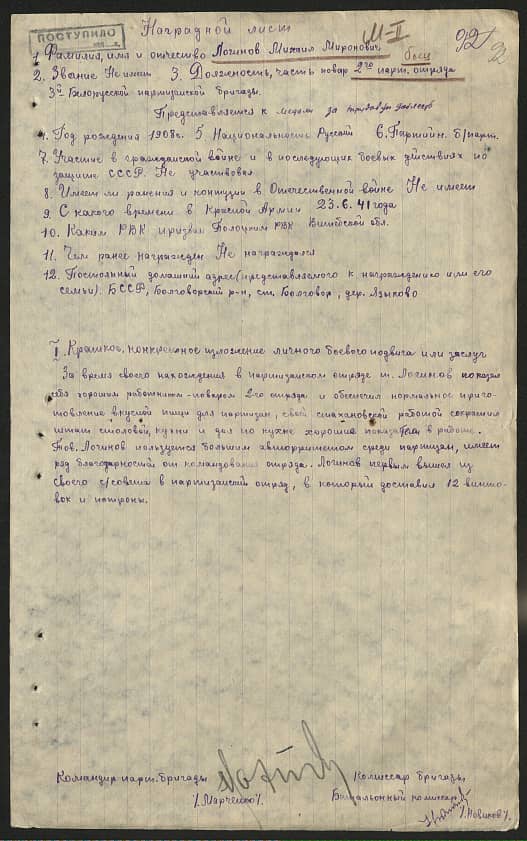 ПОСТУПИЛО
Наградной лист
М-I
92
1. Фамилия, имя и отчество Логинов Михаил Миронович
боец
2. Звание Не имеет 3. Должность, часть повар 2го парт. отряда
3й Белорусской партизанской бригады.
Представляется к медали за трудовую доблесть
4. Год рождения 1908г. 5 Национальность Русский 6. Партийн. б/парт.
7. Участие в гражданской войне и в последующих боевых действиях по
защите СССР. Не участвовал
8. Имеет ли ранения и контузии в Отечественной войне Не имеет
9. С какого времени в Красной Армии 23.6.41 года
10. Каким РВК призван Полоцким РВК Витебской обл.
11. Чем ранее награжден Не награждался
12. Постоянный домашний адрес (представляемого к награждению или его
семьи). БССР, р-н, ст. дер. Языково
I. Краткое, конкретное изложение личного боевого подвига или заслуг
За время своего нахождения в партизанском отряде т. Логинов показал
себя хорошим работником-поваром 2го отряда и обеспечил нормальное приго-
товление вкусной пищи для партизан, своей стахановской работой сократил
штат столовой, кухни и дал по кухне хорошие показатели в работе.
Тов. Логинов пользуется большим авторитетом среди партизан, имеет
ряд благодарностей от командования отряда. Логинов первым вышел из
своего с/совета в партизанский отряд, в который доставил 12 винто-
вок и патроны.
Командир парт. бригады Комиссар бригады
/Марченко/. Батальонный комиссар
/Новиков/.